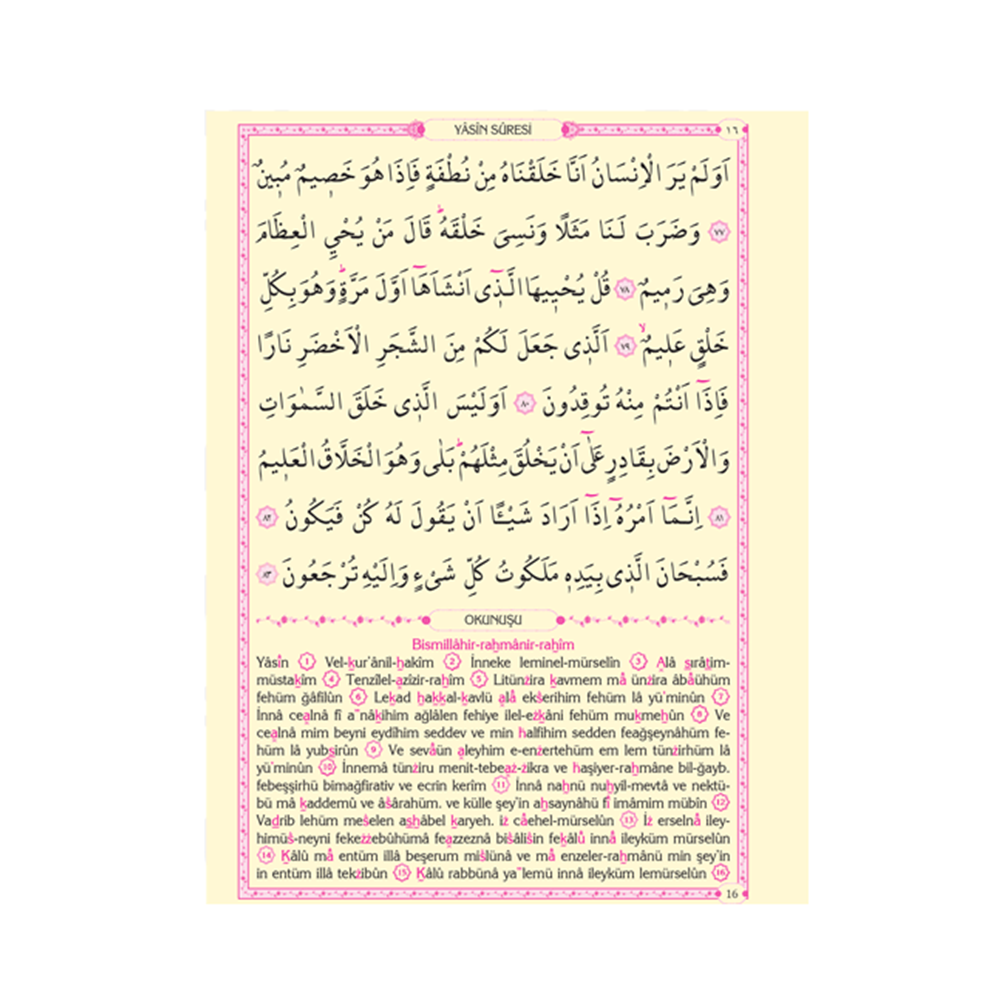 YÂSÎN SÛRESİ
١٦
اَوَلَمْ يَرَ الْاِنْسَانُ اَنَّا خَلَقْنَاهُ مِنْ نُطْفَةٍ فَاِذَا هُوَ خَصٖيمٌ مُبٖينٌ
٧٧ وَضَرَبَ لَنَا مَثَلًا وَنَسِىَ خَلْقَهُۜ قَالَ مَنْ يُحْيِ الْعِظَامَ
وَهِىَ رَمٖيمٌ ٧٨ قُلْ يُحْيٖيهَا الَّـذٖٓى اَنْشَاَهَٓا اَوَّلَ مَرَّةٍۜ وَهُوَ بِكُلِّ
خَلْقٍ عَلٖيمٌۙ ٧٩ اَلَّذٖى جَعَلَ لَكُمْ مِنَ الشَّجَرِ الْاَخْضَرِ نَارًا
فَاِذَٓا اَنْتُمْ مِنْهُ تُوقِدُونَ ٨٠ اَوَلَيْسَ الَّذٖى خَلَقَ السَّمٰوَاتِ
وَالْاَرْضَ بِقَادِرٍ عَلٰٓى اَنْ يَخْلُقَ مِثْلَهُمْۜ بَلٰى وَهُوَ الْخَلَّاقُ الْعَلٖيمُ
٨١ اِنَّـمَٓا اَمْرُهُٓ اِذَٓا اَرَادَ شَيْـًٔا اَنْ يَقُولَ لَهُ كُنْ فَيَكُونُ ٨٢
فَسُبْحَانَ الَّذٖى بِيَدِهٖ مَلَكُوتُ كُلِّ شَىْءٍ وَاِلَيْهِ تُرْجَعُونَ ٨٣
OKUNUŞU
Bismillâhir-raḥmânir-raḥîm
Yâsîn 1 Vel-ḳur'ânil-ḥakîm 2 İnneke leminel-mürselîn 3 Alâ sırâtim-
müstaḳîm 4 Tenzîlel-azîzir-raḥîm 5 Litünzira ḳavmem mâ ünzira âbâühüm
fehüm ğâfilûn 6 Leḳad ḥaḳḳal-ḳavlü alâ ekserihim fehüm lâ yü'minûn 7
İnnâ cealnâ fî a'nâḳihim ağlâlen fehiye ilel-ezḳâni fehüm muḳmeḥûn 8 Ve
cealnâ mim beyni eydîhim seddev ve min halfihim sedden feağşeynâhüm fe-
hüm lâ yubṣirûn 9 Ve sevâün aleyhim e-enzertehüm em lem tünzirhüm lâ
yü'minûn 10 İnnemâ tünziru menit-tebeaz-zikra ve haşiyer-raḥmâne bil-ğayb.
febeşşirhü bimağfirativ ve ecrin kerîm 11 İnnâ naḥnü nuḥyil-mevtâ ve nektü-
bü mâ ḳaddemû ve âsârahüm. ve külle şey'in aḥsaynâhü fî imâmim mübîn 12
Vaḍrib lehüm meselen aṣḥâbel ḳaryeh. iz câehel-mürselûn 13 İz erselnâ iley-
himüs-neyni fekezzebûhümâ feazzeznâ bisâlisin feḳâlû innâ ileyküm mürselûn
14 Ḳâlû mâ entüm illâ beşerum mislünâ ve mâ enzeler-raḥmânü min şey'in
in entüm illâ tekzibûn 15 Ḳâlû rabbünâ ya'lemü innâ ileyküm lemürselûn 16
16